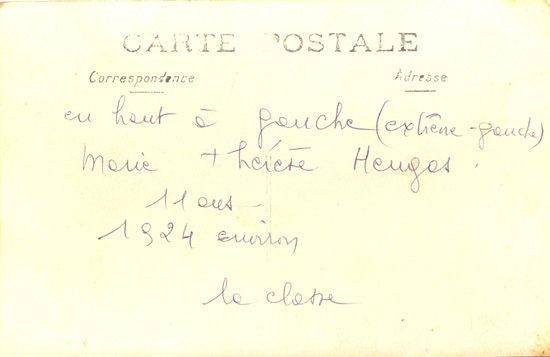 CARTE POSTALE
Correspondance Adresse
en haut à gauche (extrême-gauche)
Marie thérèse Hengas.
11 ans -
1924 environ
la classe